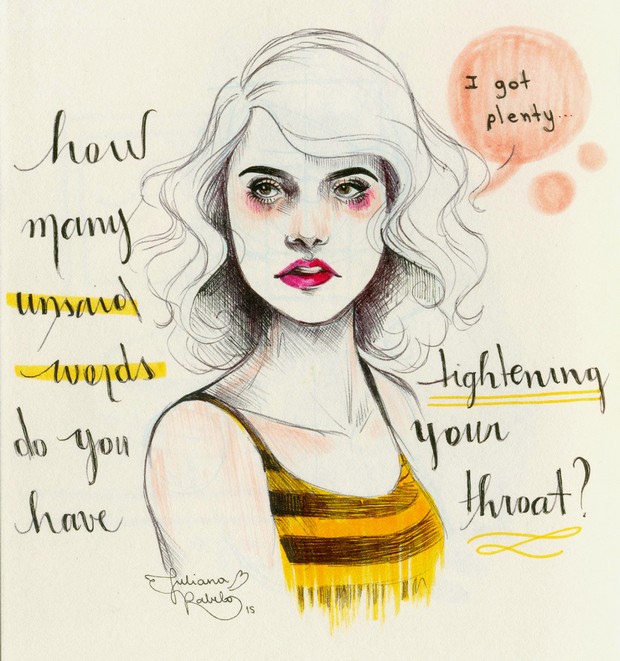 how
many
unsaid
words
do you
have
tightening
your
throat?
I got
plenty...
Juliana
Rabelo
15